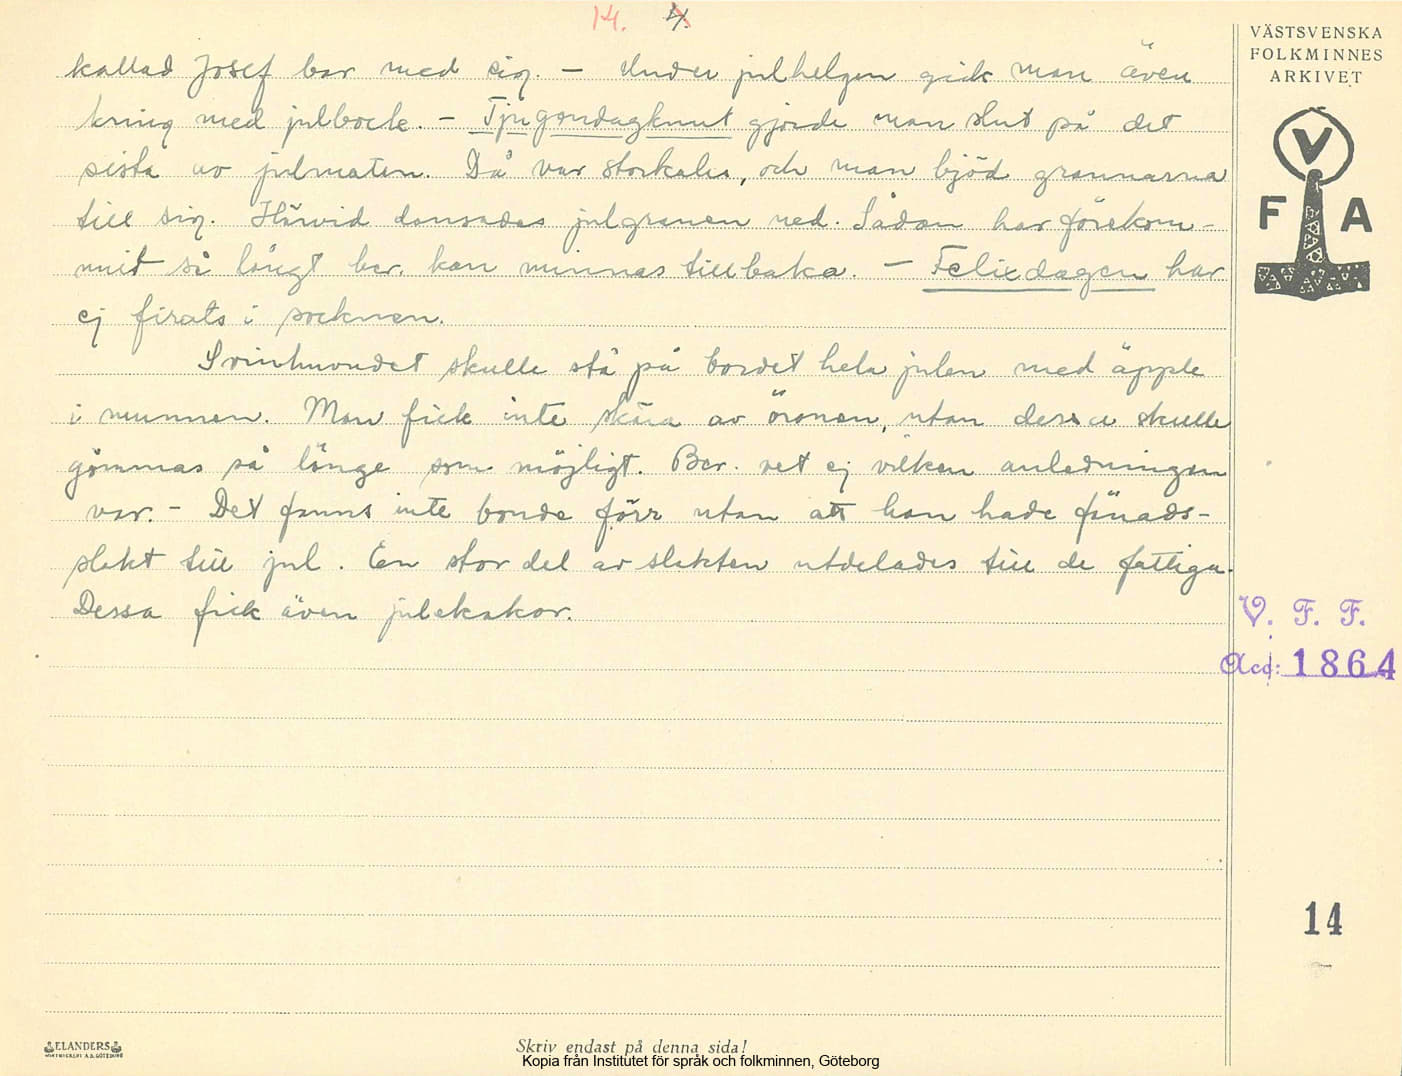 14. 4.
VÄSTSVENSKA
FOLKMINNES
ARKIVET
kallad Josef bar med sig. – Under julhelgen gick man även
kring med julbock. – Tjugondagknut gjorde man slut på det
sista av julmaten. Då var storkalas, och man bjöd grannarna
till sig. Härvid dansades julgranen ned. Sådan har förekom-
mit så långt ber. kan minnas tillbaka. – Felixdagen har
ej firats i socknen.
Svinhuvudet skulle stå på bordet hela julen med äpple
i munnen. Man fick inte skära av öronen, utan dessa skulle
gömmas så länge som möjligt. Ber. vet ej vilken anledningen
var. – Det fanns inte bonde förr utan att han hade fänads-
slakt till jul. En stor del av slakten utdelades till de fattiga.
Dessa fick även julekakor.
V
F A
V. F. F.
Acc: 1864
14
ELANDERS
Skriv endast på denna sida!
Kopia från Institutet för språk och folkminnen, Göteborg